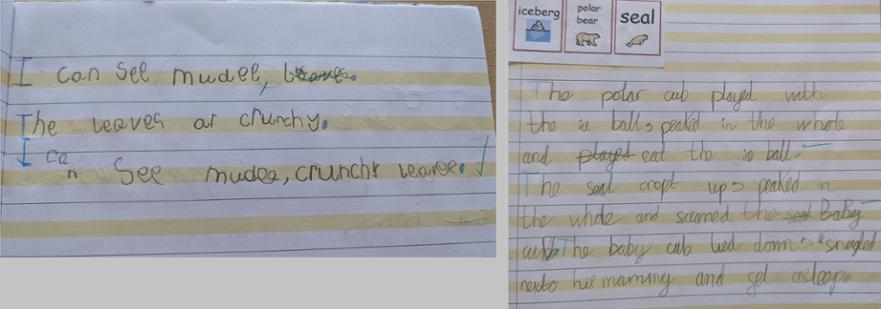 I can see mudee, leaves.
The leaves ar crunchy.
I can see mudea, crunchy leavee.
iceberg
polar bear
seal
The polar cub played with
the ice ball, peaked in the whole
and played eat the ice ball.
The seal cropt up, peaked in
the whole and scanned the seal BaBy
cub The baby cub lied down, snugled
nexto her mammy and gel asleep.